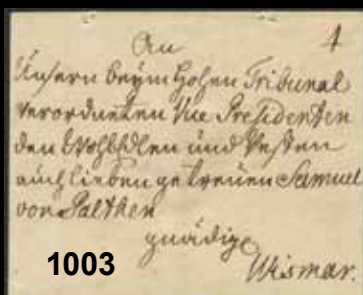 An 4
Unsern beym hohen Tribunal
verordneten Vice Presidenten
den WohlEdlen und Vesten
auch lieben getreuen Samuel
von Palthen
gnädige
1003 Wismar.